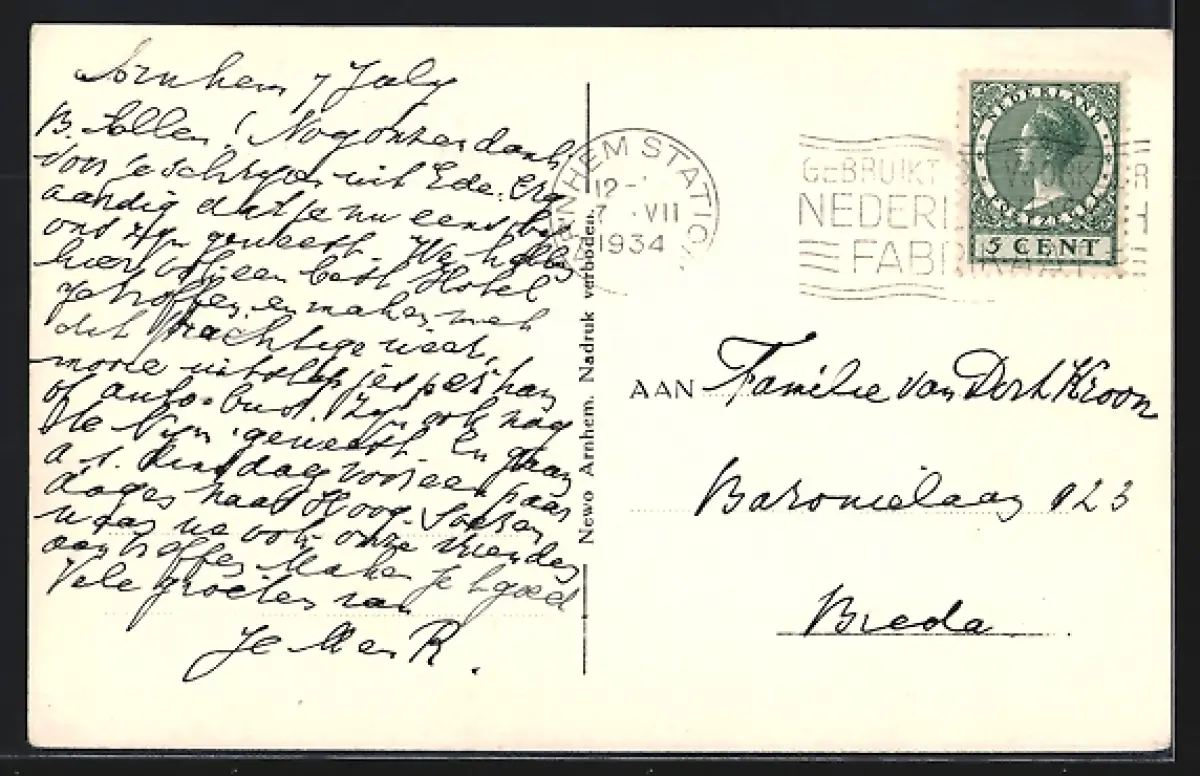 Arnhem 7 July
B. Allen! Nog onzen dank
voor je schrijven uit Ede. Erg
aardig dat je nu eens bij
ons zijt geweest. We hebben
hier een best Hotel
getroffen, en maken met
dit prachtige weer,
mooie uitstapjes per
of autobus. Zijn ook nog
geweest. En gaan
a.s. Dinsdag voor een paar
dagen naar Hoog-Soeren
waar we ook onze vrienden
aantreffen. Maken je 't goed
Vele groeten van
Je M en R.
Newo Arnhem. Nadruk verboden.
ARNHEM STATION
12-
7 VII
1934
GEBRUIKT
NEDERL
FABRIKAAT
NEDERLAND
5 CENT
AAN Familie van Dort Kroon
Baronielaan 123
Breda